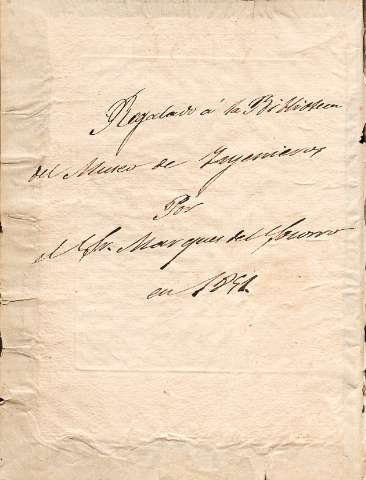 Regalado á la Biblioteca
del Museo de Ingenieros
Por
el Sr. Marques del Socorro
en 1851